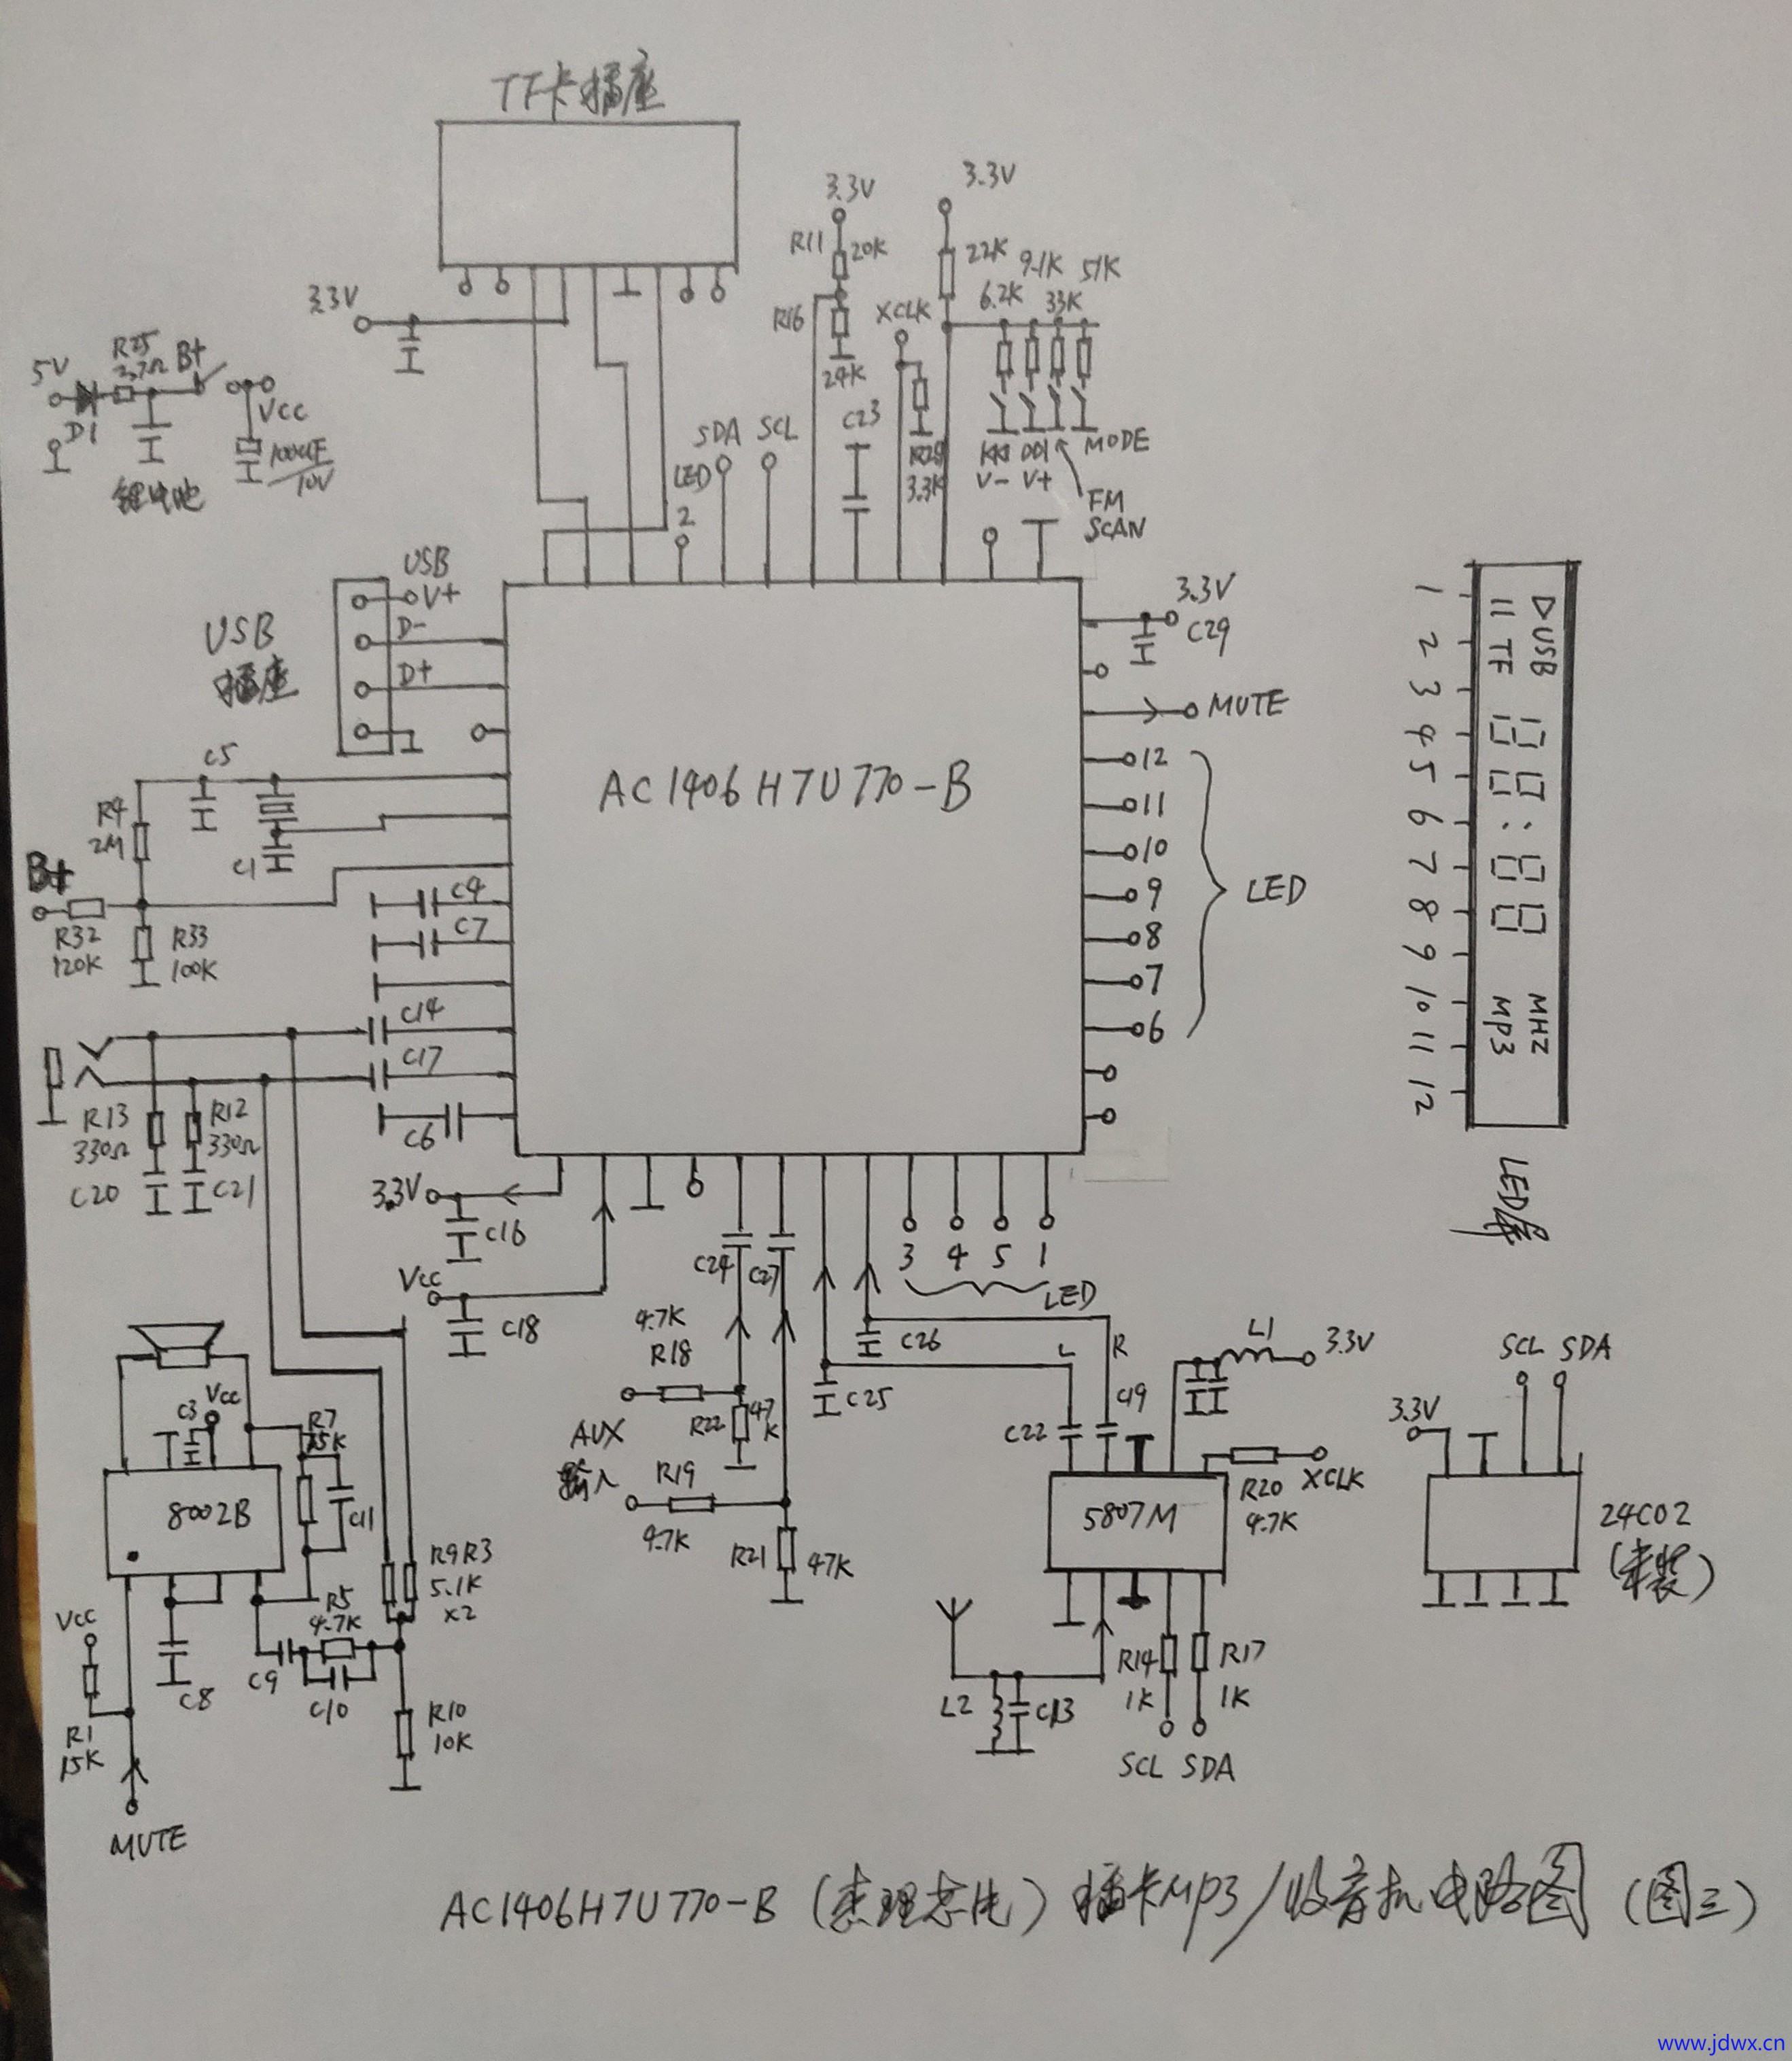 TF卡插座
3.3V
3.3V
R11
20K
22K
9.1K
51K
6.2K
33K
3.3V
R16
XCLK
24K
5V
R25
B+
D1
VCC
100UF
/10V
锂电池
C23
SDA
SCL
LED
2
3.3K
V-
V+
MODE
FM
SCAN
USB
V+
D-
D+
USB
插座
3.3V
C29
MUTE
AC1406H7U770-B
12
11
10
9
8
7
6
LED
C5
R4
2M
C1
B+
R32
120K
R33
100K
C4
C7
C14
C17
C6
R13
330Ω
R12
330Ω
C20
C21
3.3V
C16
VCC
C18
C24
C27
3
4
5
1
LED
1
2
3
4
5
6
7
8
9
10
11
12
▷ USB
II TF
MHZ
MP3
LED屏
4.7K
R18
R22
47
K
AUX
输入
R19
4.7K
R21
47K
C26
C25
L
R
C22
C19
L1
3.3V
5807M
R20
4.7K
XCLK
L2
C13
R14
1K
R17
1K
SCL
SDA
SCL
SDA
3.3V
24C02
(未装)
C3
VCC
R7
15K
8002B
C11
R9
R3
5.1K
x2
R5
4.7K
VCC
C8
C9
C10
R10
10K
R1
15K
MUTE
AC1406H7U770-B(杰理芯片)插卡MP3/收音机电路图(图三)
www.jdwx.cn